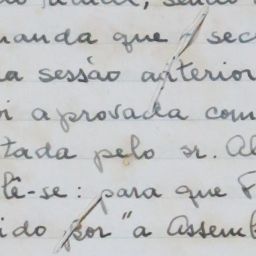 manda que o sec
a sessão anterior
i aprovada com
tada pelo sr. Al
lê-se: para que P
ido por "a Assemb